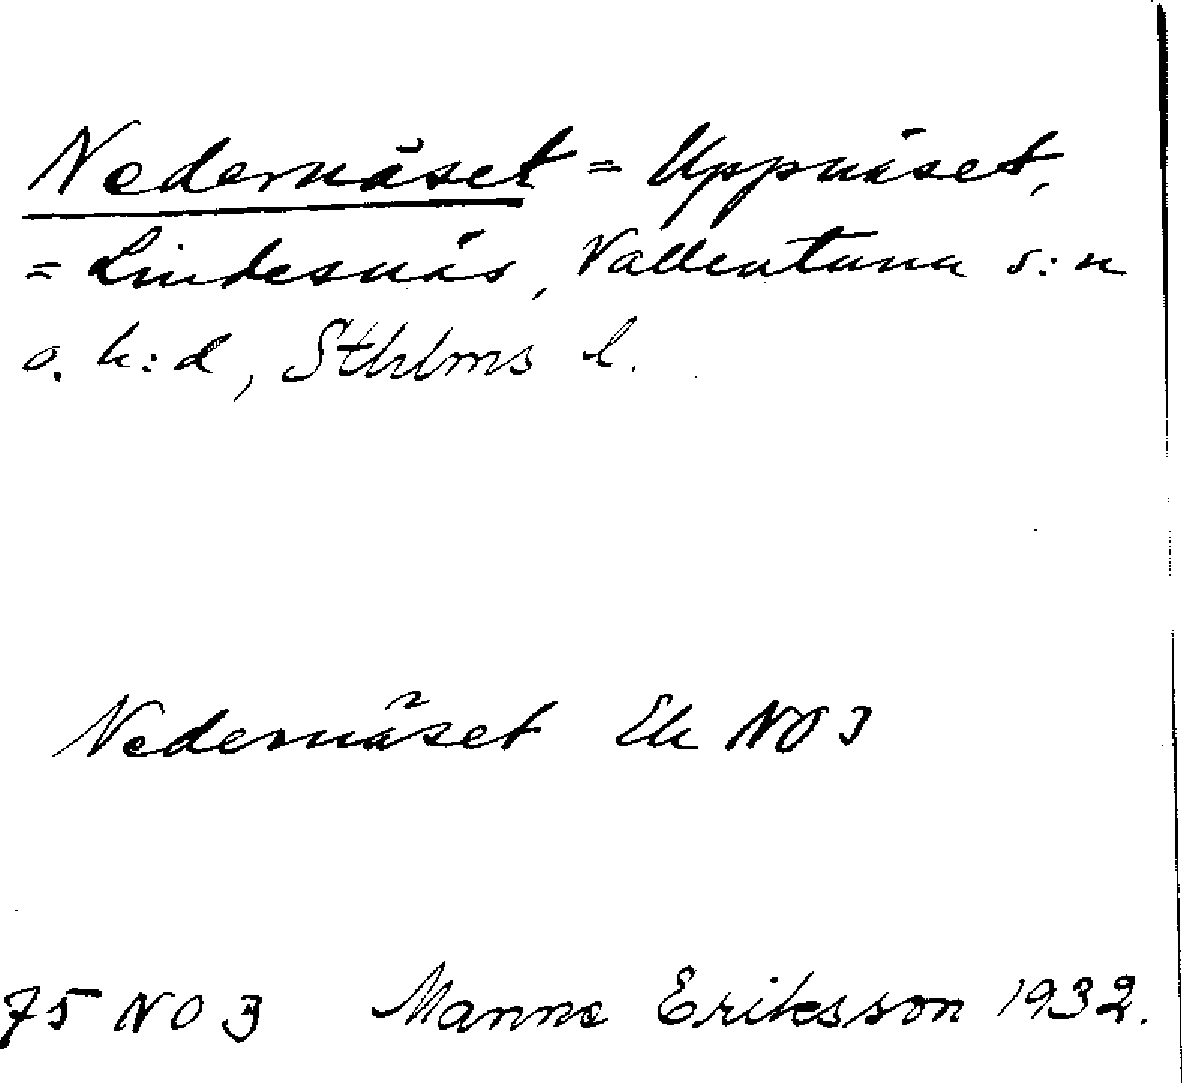 Nedernäset = Uppnäset,
= Lindesnäs, Vallentuna s:n
o. h:d, Sthlms l.
Nedernäset Ek NO 3
75 NO 3 Manne Eriksson 1932.